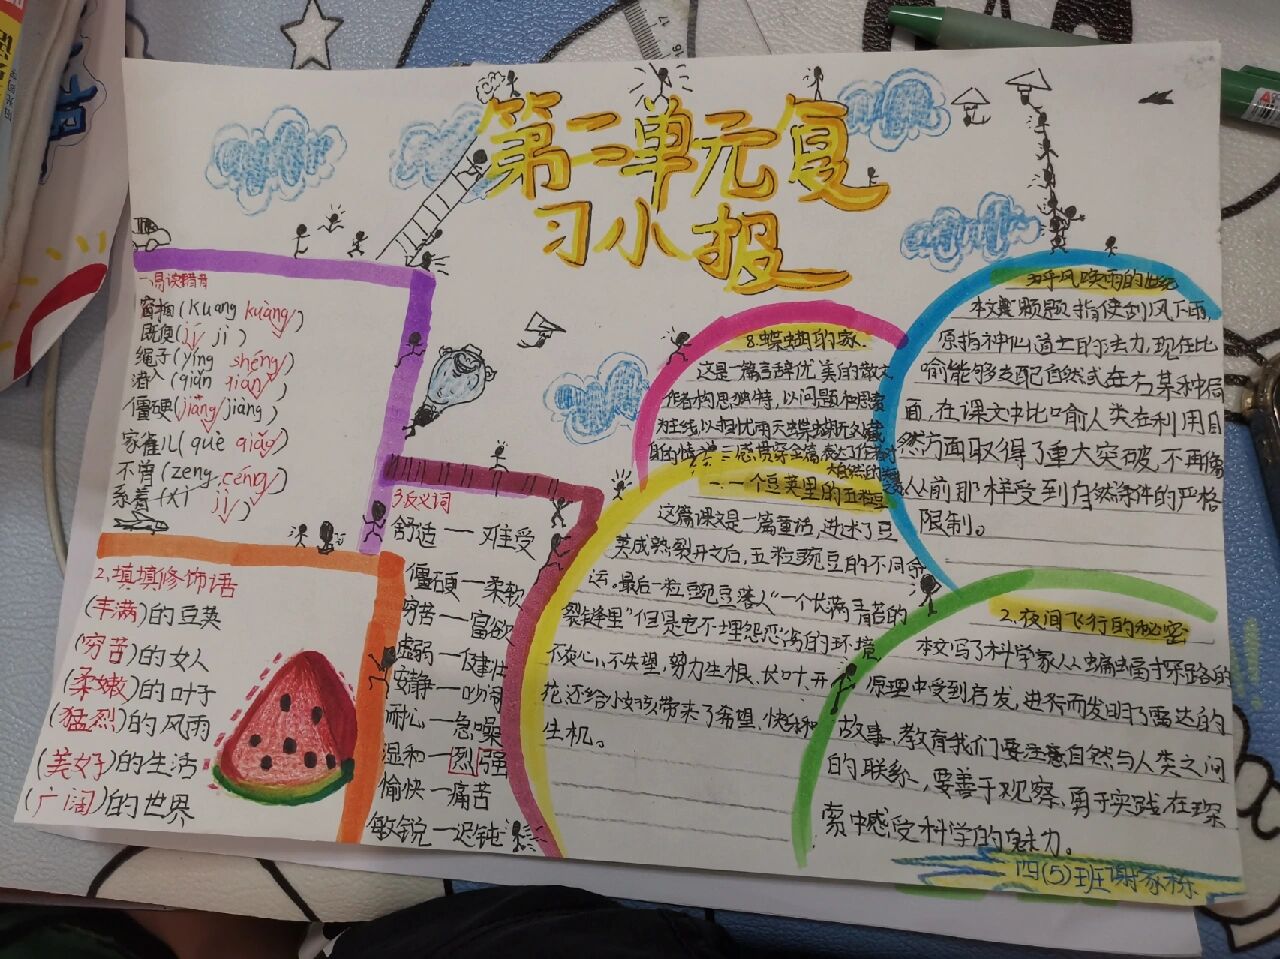 第二单元复
习小报
一、易读错音
窗框(kuang kuàng)
既使(jí jì)
绳子(yíng shéng)
潜入(qiǎn qián)
僵硬(jiāng jiàng)
家雀儿(què qiǎo)
不曾(zeng céng)
系着(xì jì)
2、填填修饰语
(丰满)的豆荚
(穷苦)的女人
(柔嫩)的叶子
(猛烈)的风雨
(美好)的生活
(广阔)的世界
3反义词
舒适一难受
僵硬一柔软
穷苦一富欲
虚弱一健壮
安静一吵闹
耐心一急噪
温和一烈强
愉快一痛苦
敏锐一迟钝
8.蝴蝶的家
这是一篇言辞优美的散文
作者构思独特,以问题和思索
为主线以担忧雨天蝴蝶无处藏
身的情
感贯穿全篇表达了作者对
大自然的
一个豆荚里的五粒豆
这篇课文是一篇童话,讲述了豆
荚成熟裂开之后,五粒豌豆的不同命
运。最后一粒豌豆落入“一个长满青苔的
裂缝里”但是它不埋怨恶劣的环境
不灰心、不失望,努力生根、长叶、开
花,还给小女孩带来了希望、快乐和
生机。
呼风唤雨的世纪
本文题
指使刮风下雨,
原指神仙道士的法力,现在比
喻能够支配自然或左右某种局
面,在课文中比喻人类在利用自
然方面取得了重大突破,不再像
从前那样受到自然条件的严格
限制。
2.夜间飞行的秘密
本文写了科学家从蝙蝠探路的
原理中受到启发,进行而发明了雷达的
故事,教育我们要注意自然与人类之间
的联系,要善于观察,勇于实践,在探
索中感受科学的魅力。
四(5)班谢家栋